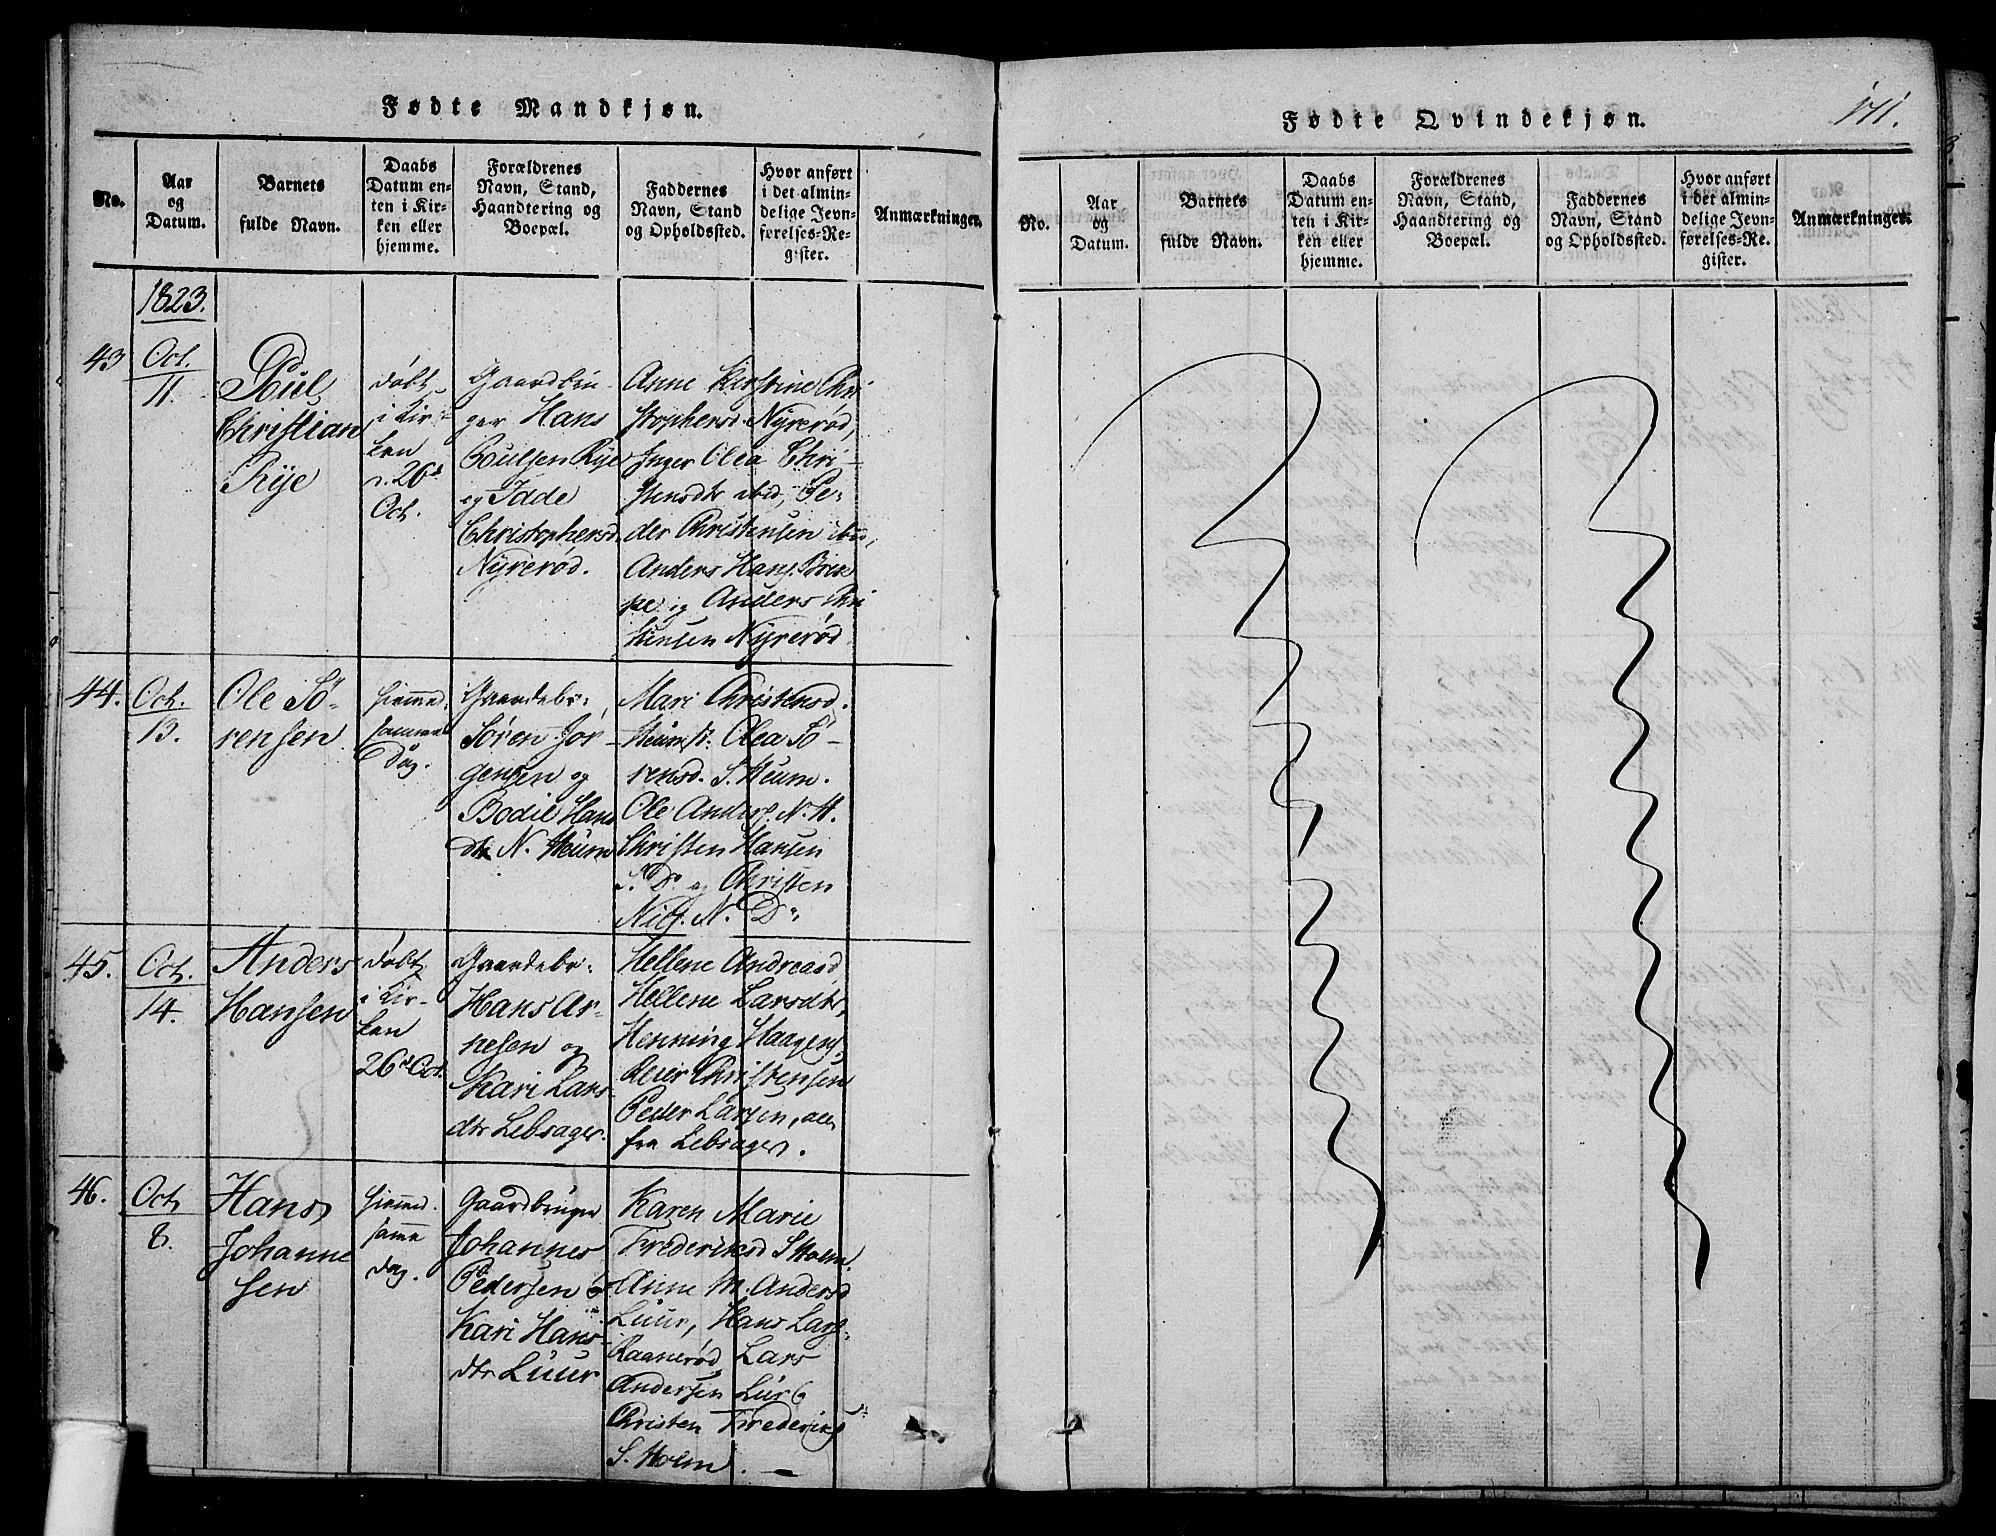 Fødte Mandkjøn.
No.
Aar
og
Datum.
Barnets
fulde Navn.
Daabs
Datum en-
ten i Kir-
ken eller
hjemme.
Forældrenes
Navn, Stand,
Haandtering og
Boepæl.
Faddernes
Navn, Stand
og Opholdssted.
Hvor anført
i det almin-
delige Jevn-
førelses-Re-
gister.
Anmærkninger.
1823.
43
Oct.
11.
Poul
Christian
Rÿe
Døbt
i Kir-
ken
d. 26d
Oct.
Gaardbru-
ger Hans
Poulsen Rÿe
og Idde
Christophersd.
Nÿrerød.
Anne Kirstine Chri
stophersd. Nÿrerød,
Inger Olea Chri-
stensdtr ibid, Pe-
der Christensen ibid,
Anders Hans.
og Anders Chri
stensen Nÿrerød
44.
Oct.
13.
Ole Sö-
rensen
hjemme
samme
Dag.
Gaardebr:
Søren Jør-
gensen og
Bodil Hans
dtr N. Heum
Mari Christensd.
Heum Olea Sö-
rensd. S. Heum.
Ole Anders. N. H.
Christen Hansen
S. Do og Christen
Nils. N. Do
45.
Oct.
14.
Anders
Hansen
Døbt
i Kir-
ken
26d Oct.
Gaardebr:
Hans Ar-
nesen og
Kari Lars-
dtr Lebsager.
Hellene Andreasd
Hellene Larsdtr,
Henning Haagens,
Peder Christensen
Peder Larsen, alle
fra Lebsager.
46.
Oct
8.
Hans
Johanne
sen
hjemmed.
samme
Dag.
Gaardbruger
Johannes
Pedersen o
Kari Hans-
dtr Luur
Karen Marie
Frederiksd S Holm.
Anne M. Andersd
Luur, Hans Lars.
Raanerød Lars
Andersen Lur
Christen Frederiks
S. Holm. —
171.
Fødte Qvindekjøn.
No.
Aar
og
Datum.
Barnets
fulde Navn.
Daabs
Datum en-
ten i Kir-
ken eller
hjemme.
Forældrenes
Navn, Stand,
Haandtering og
Boepæl.
Faddernes
Navn, Stand
og Opholdssted.
Hvor anført
i det almin-
delige Jevn-
førelses-Re-
gister.
Anmærkninger.